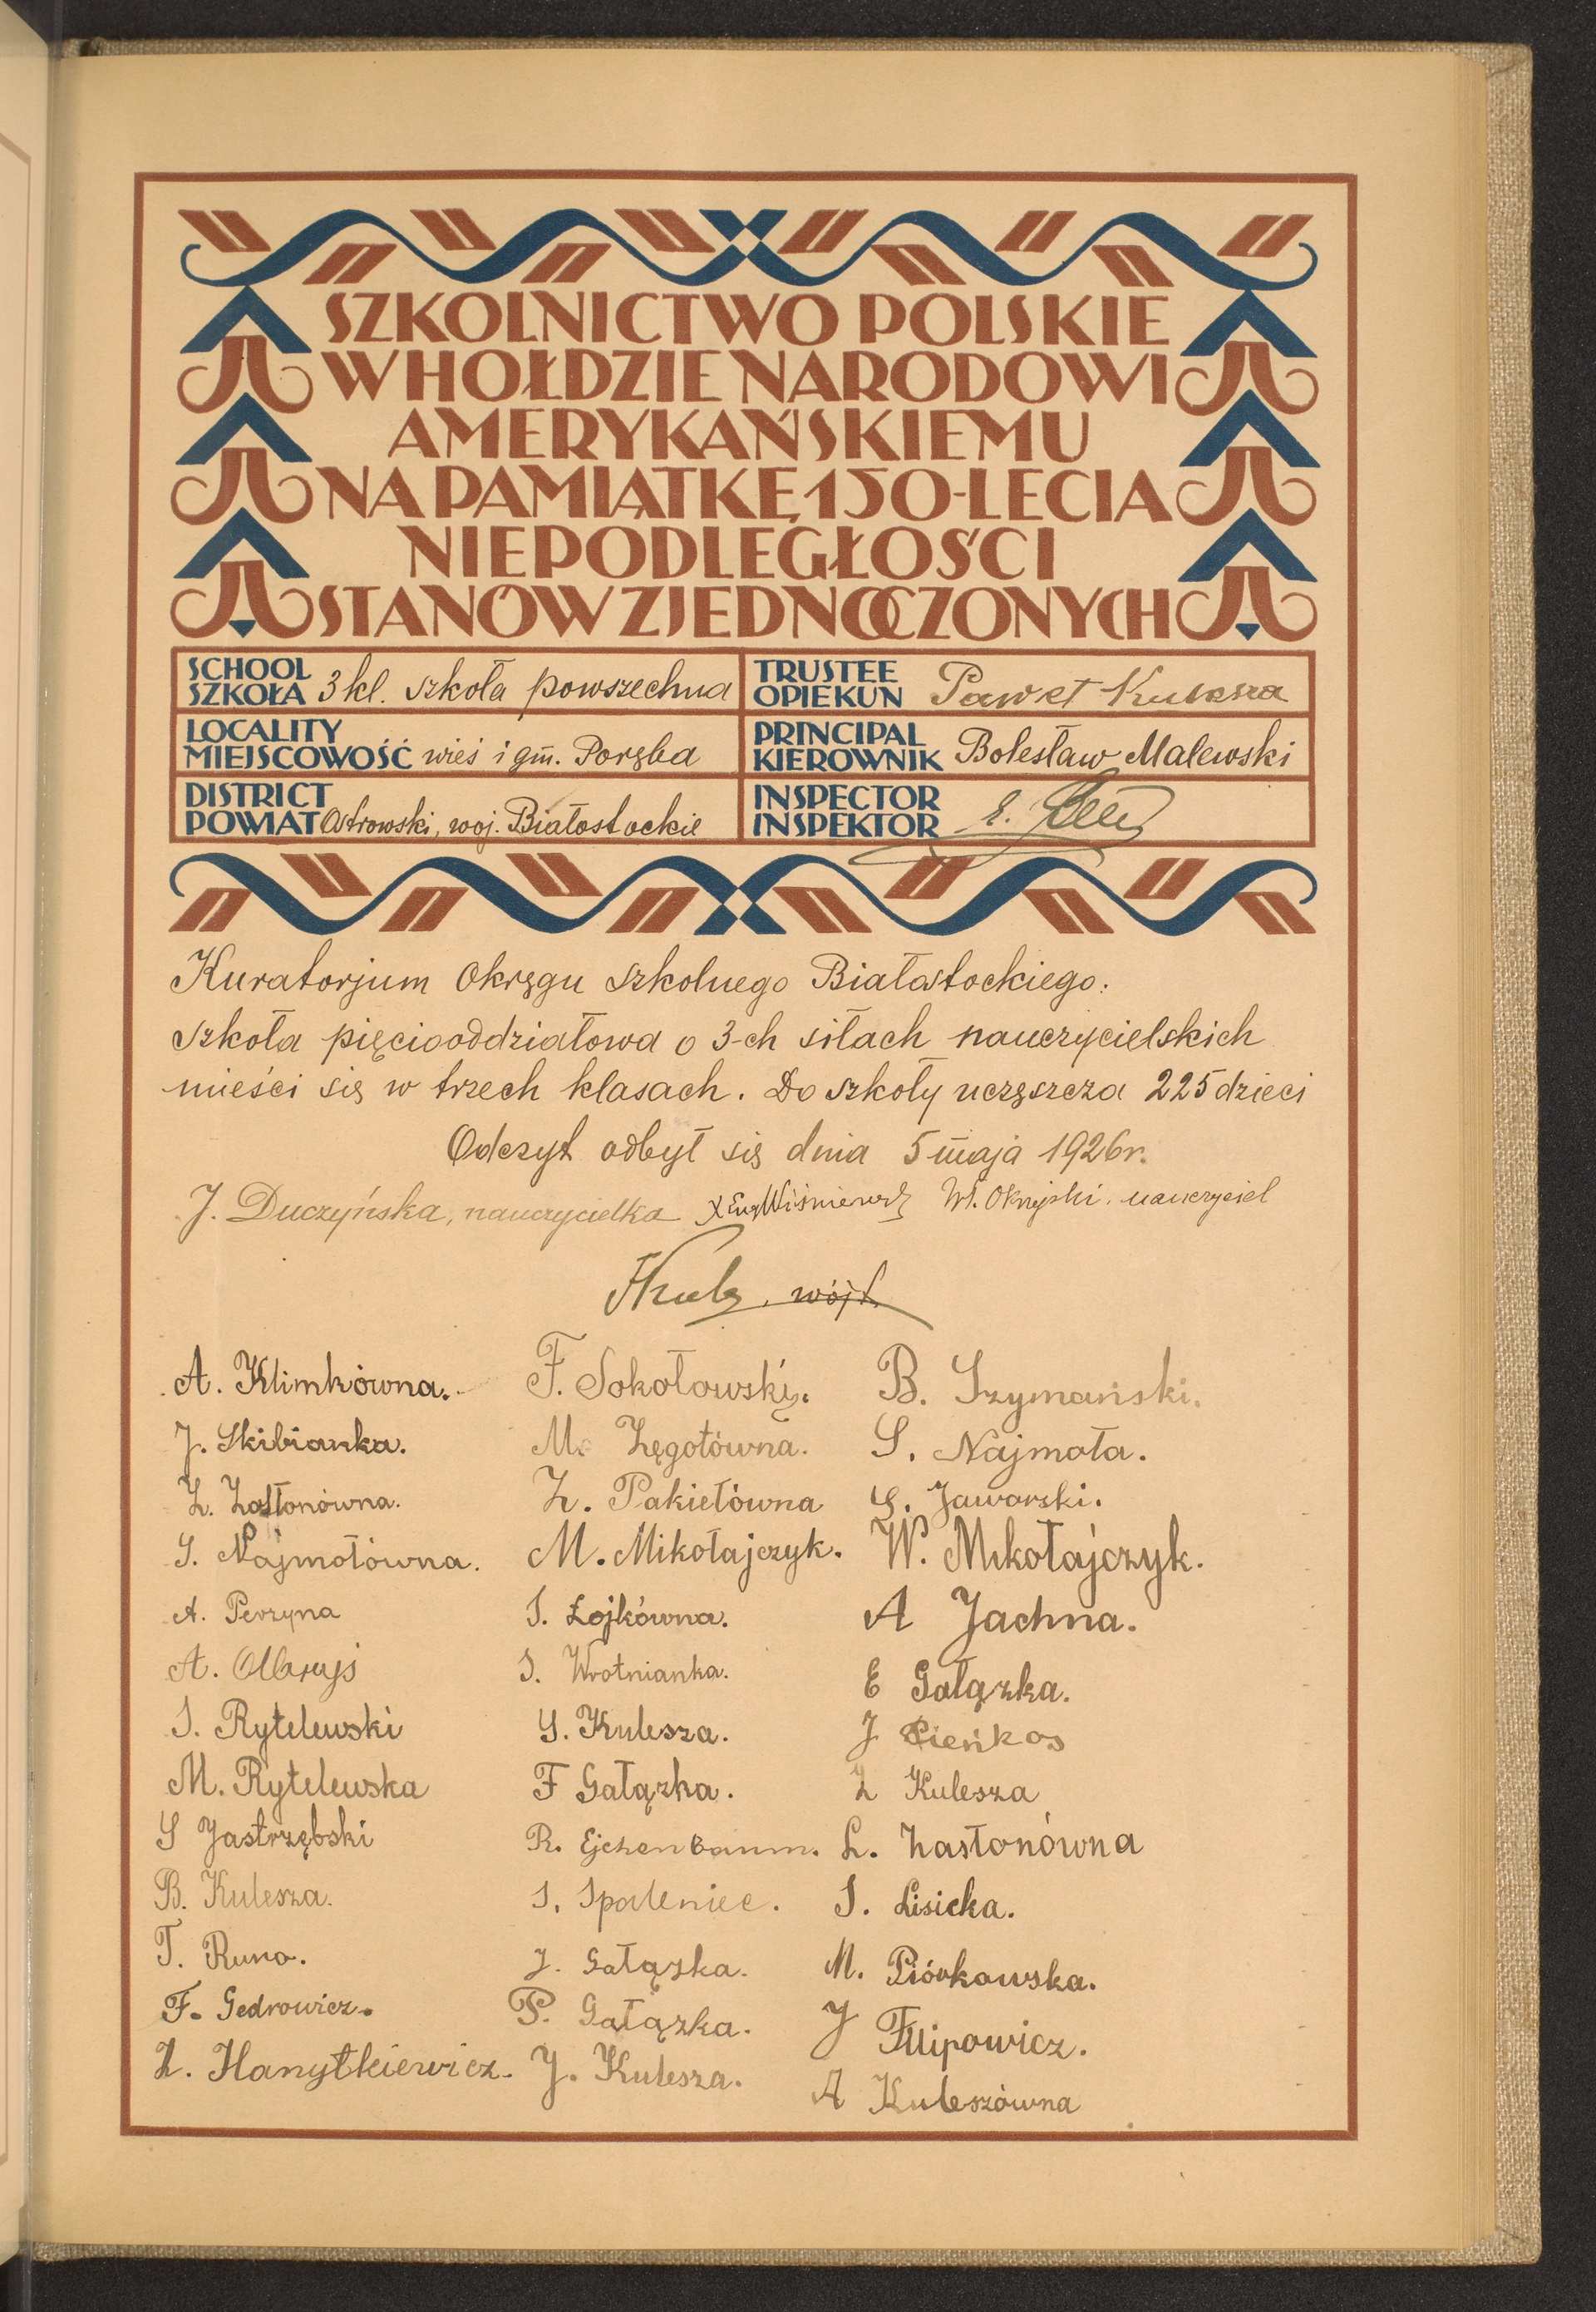 SZKOLNICTWO POLSKIE
W HOŁDZIE NARODOWI
AMERYKAŃSKIEMU
NA PAMIĄTKĘ 150-LECIA
NIEPODLEGŁOŚCI
STANÓW ZJEDNOCZONYCH
SCHOOL
SZKOŁA 3 kl. szkoła powszechna
TRUSTEE
OPIEKUN Paweł Kulesza
LOCALITY
MIEJSCOWOŚĆ wieś i gm. Poręba
PRINCIPAL
KIEROWNIK Bolesław Malewski
DISTRICT
POWIAT Ostrowski, woj. Białostockie
INSPECTOR
INSPEKTOR
Kuratorjum Okręgu szkolnego Białostockiego:
szkoła pięciooddziałowa o 3-ch siłach nauczycielskich
mieści się w trzech klasach. Do szkoły uczęszcza 225 dzieci
Odczyt odbył się dnia 5 maja 1926 r.
J. Duczyńska, nauczycielka X Eug Wiśniewski Wł. Okrejski, nauczyciel
wójt
A. Klimkówna.
J. Skibianka.
Z. Zasłonówna.
S. Najmołówna.
A. Perzyna
A. Olbryś
S. Rytelewski
M. Rytelewska
S Jastrzębski
B. Kulesza.
T. Runo.
F. Gedrowicz.
Z. Hanytkiewicz.
F. Sokołowski.
M. Zęgotówna.
Z. Pakiełówna
M. Mikołajczyk.
S. Łojkówna.
S. Wrotnianka.
S. Kulesza.
F Gałązka.
R. Ejchenbaum.
S. Spaleniec.
J. Gałązka.
P. Gałązka.
J. Kulesza.
B. Szymański.
S. Najmoła.
S. Jaworski.
W. Mikołajczyk.
A Jachna.
E Gałązka.
J Pieńkos
Z Kulesza
L. Zasłonówna
S. Lisicka.
M. Piórkowska.
J Filipowicz.
A Kuleszówna